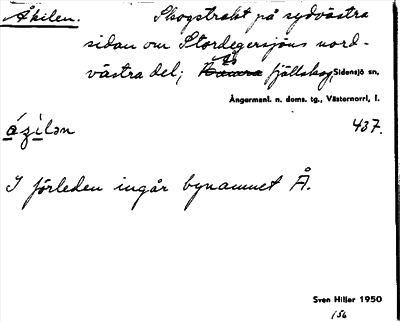 Åkilen. Skogstrakt på sydvästra
sidan om Stordegersjöns nord-
västra del; Ås fjällskog, Sidensjö sn,
Ångermanl. n. doms. tg., Västernorrl. l.
437.
I förleden ingår bynamnet Å.
Sven Hiller 1950
156